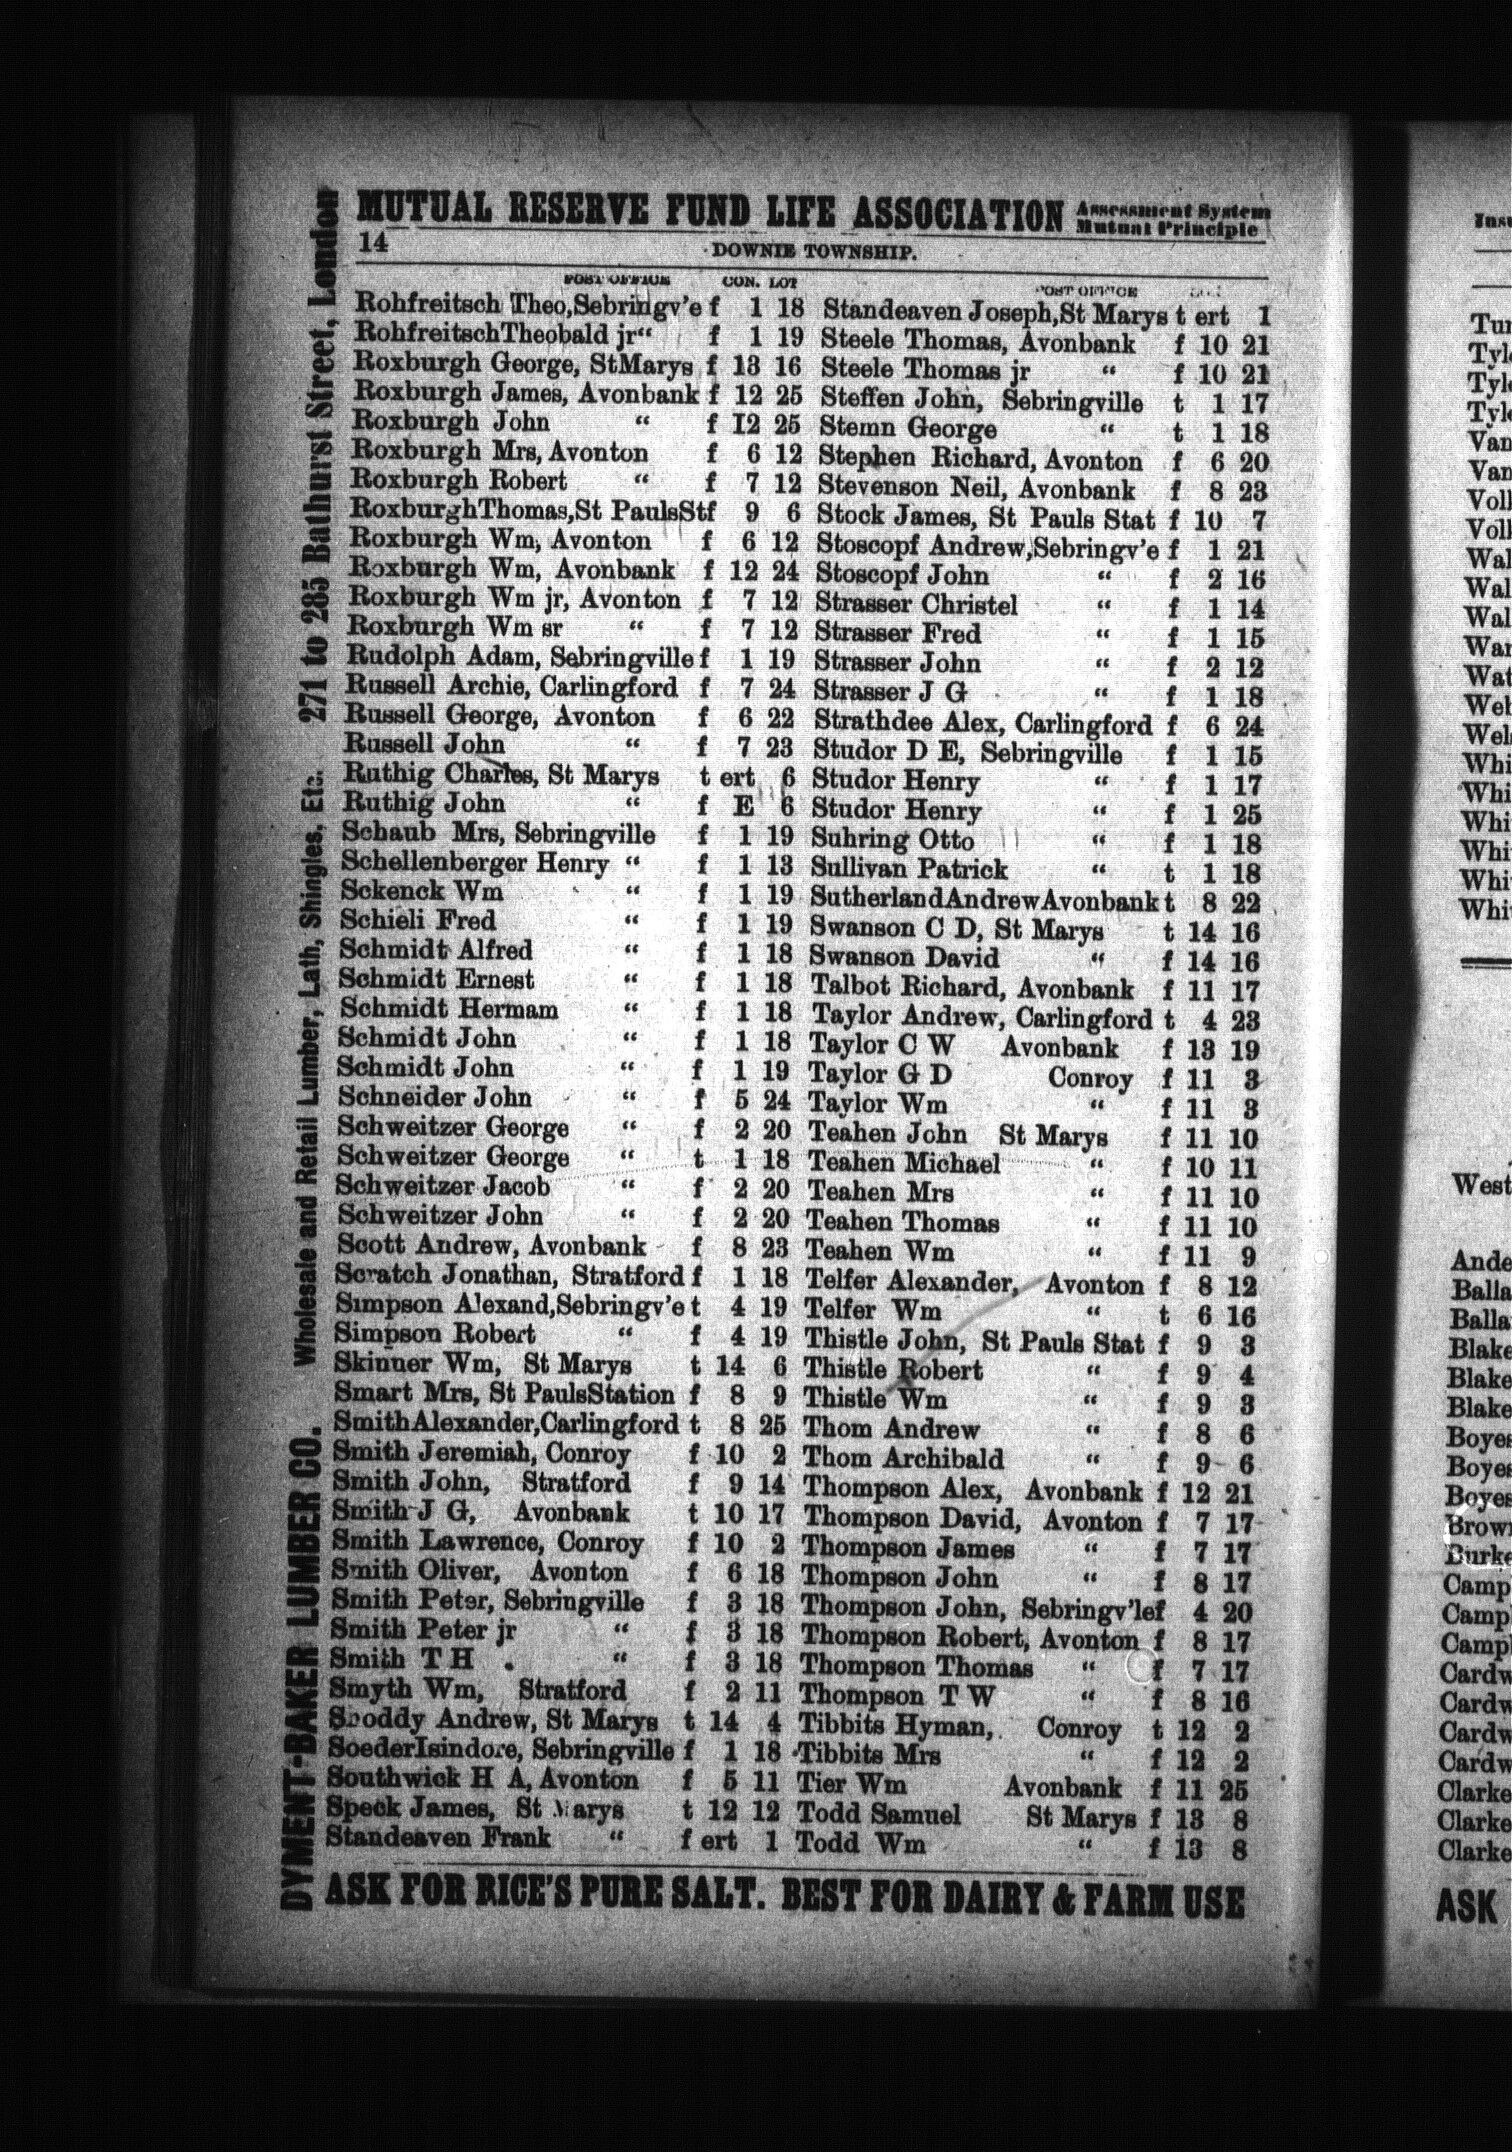 MUTUAL RESERVE FUND LIFE ASSOCIATION Assessment System Mutual Principle
14 DOWNIE TOWNSHIP.
POST OFFICE CON. LOT
Rohfreitsch Theo,Sebringv'e f 1 18
RohfreitschTheobald jr “ f 1 19
Roxburgh George, StMarys f 13 16
Roxburgh James, Avonbank f 12 25
Roxburgh John “ f I2 25
Roxburgh Mrs, Avonton f 6 12
Roxburgh Robert “ f 7 12
RoxburghThomas,St PaulsStf 9 6
Roxburgh Wm, Avonton f 6 12
Roxburgh Wm, Avonbank f 12 24
Roxburgh Wm jr, Avonton f 7 12
Roxburgh Wm sr “ f 7 12
Rudolph Adam, Sebringville f 1 19
Russell Archie, Carlingford f 7 24
Russell George, Avonton f 6 22
Russell John “ f 7 23
Ruthig Charles, St Marys t ert 6
Ruthig John “ f E 6
Schaub Mrs, Sebringville f 1 19
Schellenberger Henry “ f 1 13
Sckenck Wm “ f 1 19
Schieli Fred “ f 1 19
Schmidt Alfred “ f 1 18
Schmidt Ernest “ f 1 18
Schmidt Hermam “ f 1 18
Schmidt John “ f 1 18
Schmidt John “ f 1 19
Schneider John “ f 5 24
Schweitzer George “ f 2 20
Schweitzer George “ t 1 18
Schweitzer Jacob “ f 2 20
Schweitzer John “ f 2 20
Scott Andrew, Avonbank f 8 23
Scratch Jonathan, Stratford f 1 18
Simpson Alexand,Sebringv'e t 4 19
Simpson Robert “ f 4 19
Skinner Wm, St Marys t 14 6
Smart Mrs, St PaulsStation f 8 9
SmithAlexander,Carlingford t 8 25
Smith Jeremiah, Conroy f 10 2
Smith John, Stratford f 9 14
Smith J G, Avonbank t 10 17
Smith Lawrence, Conroy f 10 2
Smith Oliver, Avonton f 6 18
Smith Peter, Sebringville f 3 18
Smith Peter jr “ f 3 18
Smith T H “ f 3 18
Smyth Wm, Stratford f 2 11
Andrew, St Marys t 14 4
SoederIsindore, Sebringville f 1 18
Southwick H A, Avonton f 5 11
Speck James, St Marys t 12 12
Standeaven Frank “ f ert 1
POST OFFICE
Standeaven Joseph,St Marys t ert 1
Steele Thomas, Avonbank f 10 21
Steele Thomas jr “ f 10 21
Steffen John, Sebringville t 1 17
Stemn George “ t 1 18
Stephen Richard, Avonton f 6 20
Stevenson Neil, Avonbank f 8 23
Stock James, St Pauls Stat f 10 7
Stoscopf Andrew,Sebringv'e f 1 21
Stoscopf John “ f 2 16
Strasser Christel “ f 1 14
Strasser Fred “ f 1 15
Strasser John “ f 2 12
Strasser J G “ f 1 18
Strathdee Alex, Carlingford f 6 24
Studor D E, Sebringville f 1 15
Studor Henry “ f 1 17
Studor Henry “ f 1 25
Suhring Otto “ f 1 18
Sullivan Patrick “ t 1 18
SutherlandAndrewAvonbank t 8 22
Swanson C D, St Marys t 14 16
Swanson David “ f 14 16
Talbot Richard, Avonbank f 11 17
Taylor Andrew, Carlingford t 4 23
Taylor C W Avonbank f 13 19
Taylor G D Conroy f 11 3
Taylor Wm “ f 11 3
Teahen John St Marys f 11 10
Teahen Michael “ f 10 11
Teahen Mrs “ f 11 10
Teahen Thomas “ f 11 10
Teahen Wm “ f 11 9
Telfer Alexander, Avonton f 8 12
Telfer Wm “ t 6 16
Thistle John, St Pauls Stat f 9 3
Thistle Robert “ f 9 4
Thistle Wm “ f 9 3
Thom Andrew “ f 8 6
Thom Archibald “ f 9 6
Thompson Alex, Avonbank f 12 21
Thompson David, Avonton f 7 17
Thompson James “ f 7 17
Thompson John “ f 8 17
Thompson John, Sebringv'lef 4 20
Thompson Robert, Avonton f 8 17
Thompson Thomas “ f 7 17
Thompson T W “ f 8 16
Tibbits Hyman, Conroy t 12 2
Tibbits Mrs “ f 12 2
Tier Wm Avonbank f 11 25
Todd Samuel St Marys f 13 8
Todd Wm “ f 13 8
ASK FOR RICE'S PURE SALT. BEST FOR DAIRY & FARM USE
DYMENT-BAKER LUMBER CO. Wholesale and Retail Lumber, Lath, Shingles, Etc. 271 to 285 Bathurst Street, London
West
Ande
Balla
Balla
Blake
Blake
Blake
Boyes
Boyes
Boyes
Brown
Burke
Camp
Camp
Camp
Cardw
Cardw
Cardw
Cardw
Clarke
Clarke
Clarke
ASK